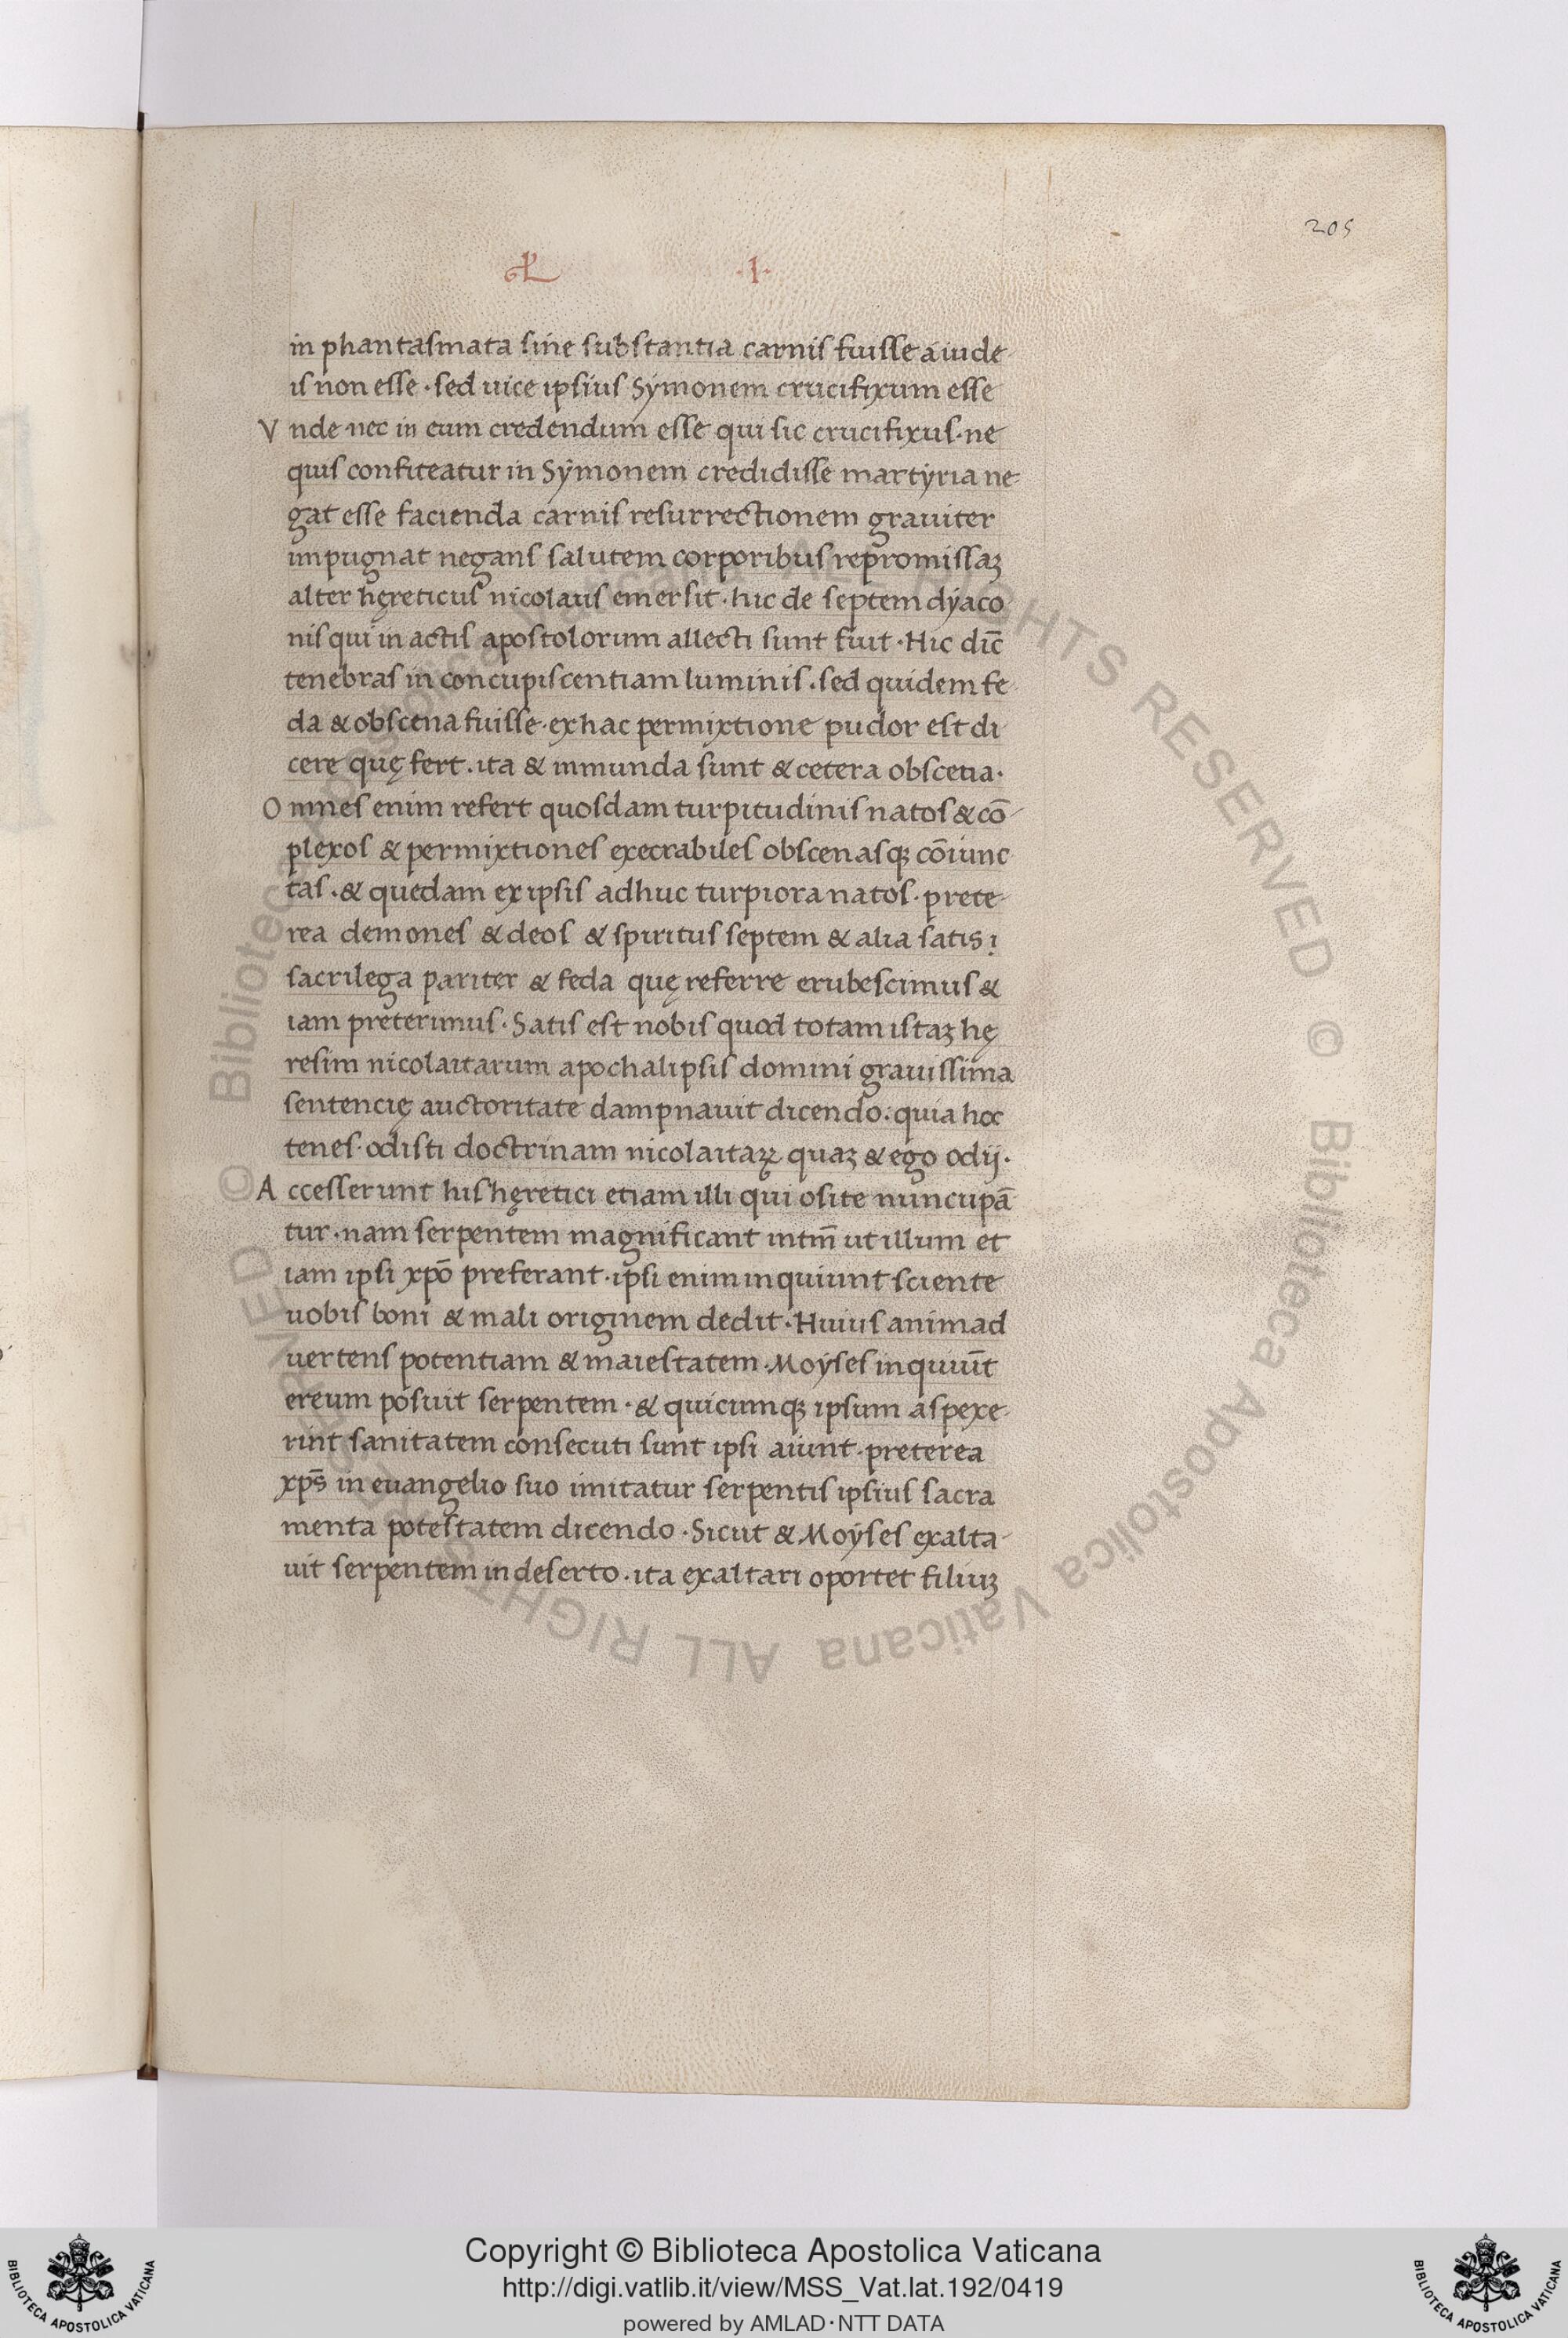 205
·I·
in phantasmata sine substantia carnis fuisse a iude-
is non esse · sed uice ipsius Symonem crucifixum esse
Vnde nec in eum credendum esse qui sic crucifixus · ne
quis confiteatur in Symonem credidisse martyria ne-
gat esse facienda carnis resurrectionem grauiter
impugnat negans salutem corporibus repromissaꝫ
alter hęreticus nicolaus emersit · hic de septem dyaco
nis qui in actis apostolorum allecti sunt fuit · Hic dic̄
tenebras in concupiscentiam luminis · sed quidem fe-
da & obscena fuisse · ex hac permixtione pudor est di
cere quę fert · ita & inmunda sunt & cetera obscena ·
Omnes enim refert quosdam turpitudinis natos & cō-
plexos & permixtiones execrabiles obscenasqꝫ cōiunc
tas · & quedam ex ipsis adhuc turpiora natos · prete-
rea demones & deos & spiritus septem & alia satis ;
sacrilega pariter & feda quę referre erubescimus &
iam preterimus · Satis est nobis quod totam istaꝫ hę
resim nicolaitarum apochalipsis domini grauissima
sentencię auctoritate dampnauit dicendo : quia hoc
tenes · odisti doctrinam nicolaitaꝝ quaꝫ & ego odij ·
Accesserunt his hęretici etiam illi qui osite nuncupā
tur · nam serpentem magnificant intm̄ ut illum et
iam ipsi xpō preferant · ipsi enim inquiunt sciente
uobis boni & mali originem dedit · Huius animad
uertens potentiam & maiestatem · Moyses inquiūt
ereum posuit serpentem · & quicumqꝫ ipsum aspexe-
rint sanitatem consecuti sunt ipsi aiunt · preterea
xps̄ in euangelio suo imitatur serpentis ipsius sacra
menta potestatem dicendo · Sicut & Moyses exalta-
uit serpentem in deserto · ita exaltari oportet filiuꝫ
© Biblioteca Apostolica Vaticana ALL RIGHTS RESERVED © Biblioteca Apostolica Vaticana ALL RIGHTS RESERVED
Copyright © Biblioteca Apostolica Vaticana
http://digi.vatlib.it/view/MSS_Vat.lat.192/0419
powered by AMLAD·NTT DATA
BIBLIOTECA APOSTOLICA VATICANA
BIBLIOTECA APOSTOLICA VATICANA